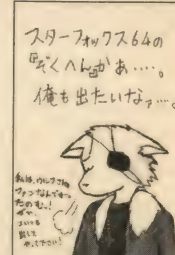 スターフォックス64の
『ぞくへん』かぁ‥‥。
俺も出たいなァ‥‥。
私は、ウルフさんの
ファンなんです。
たのむっ!